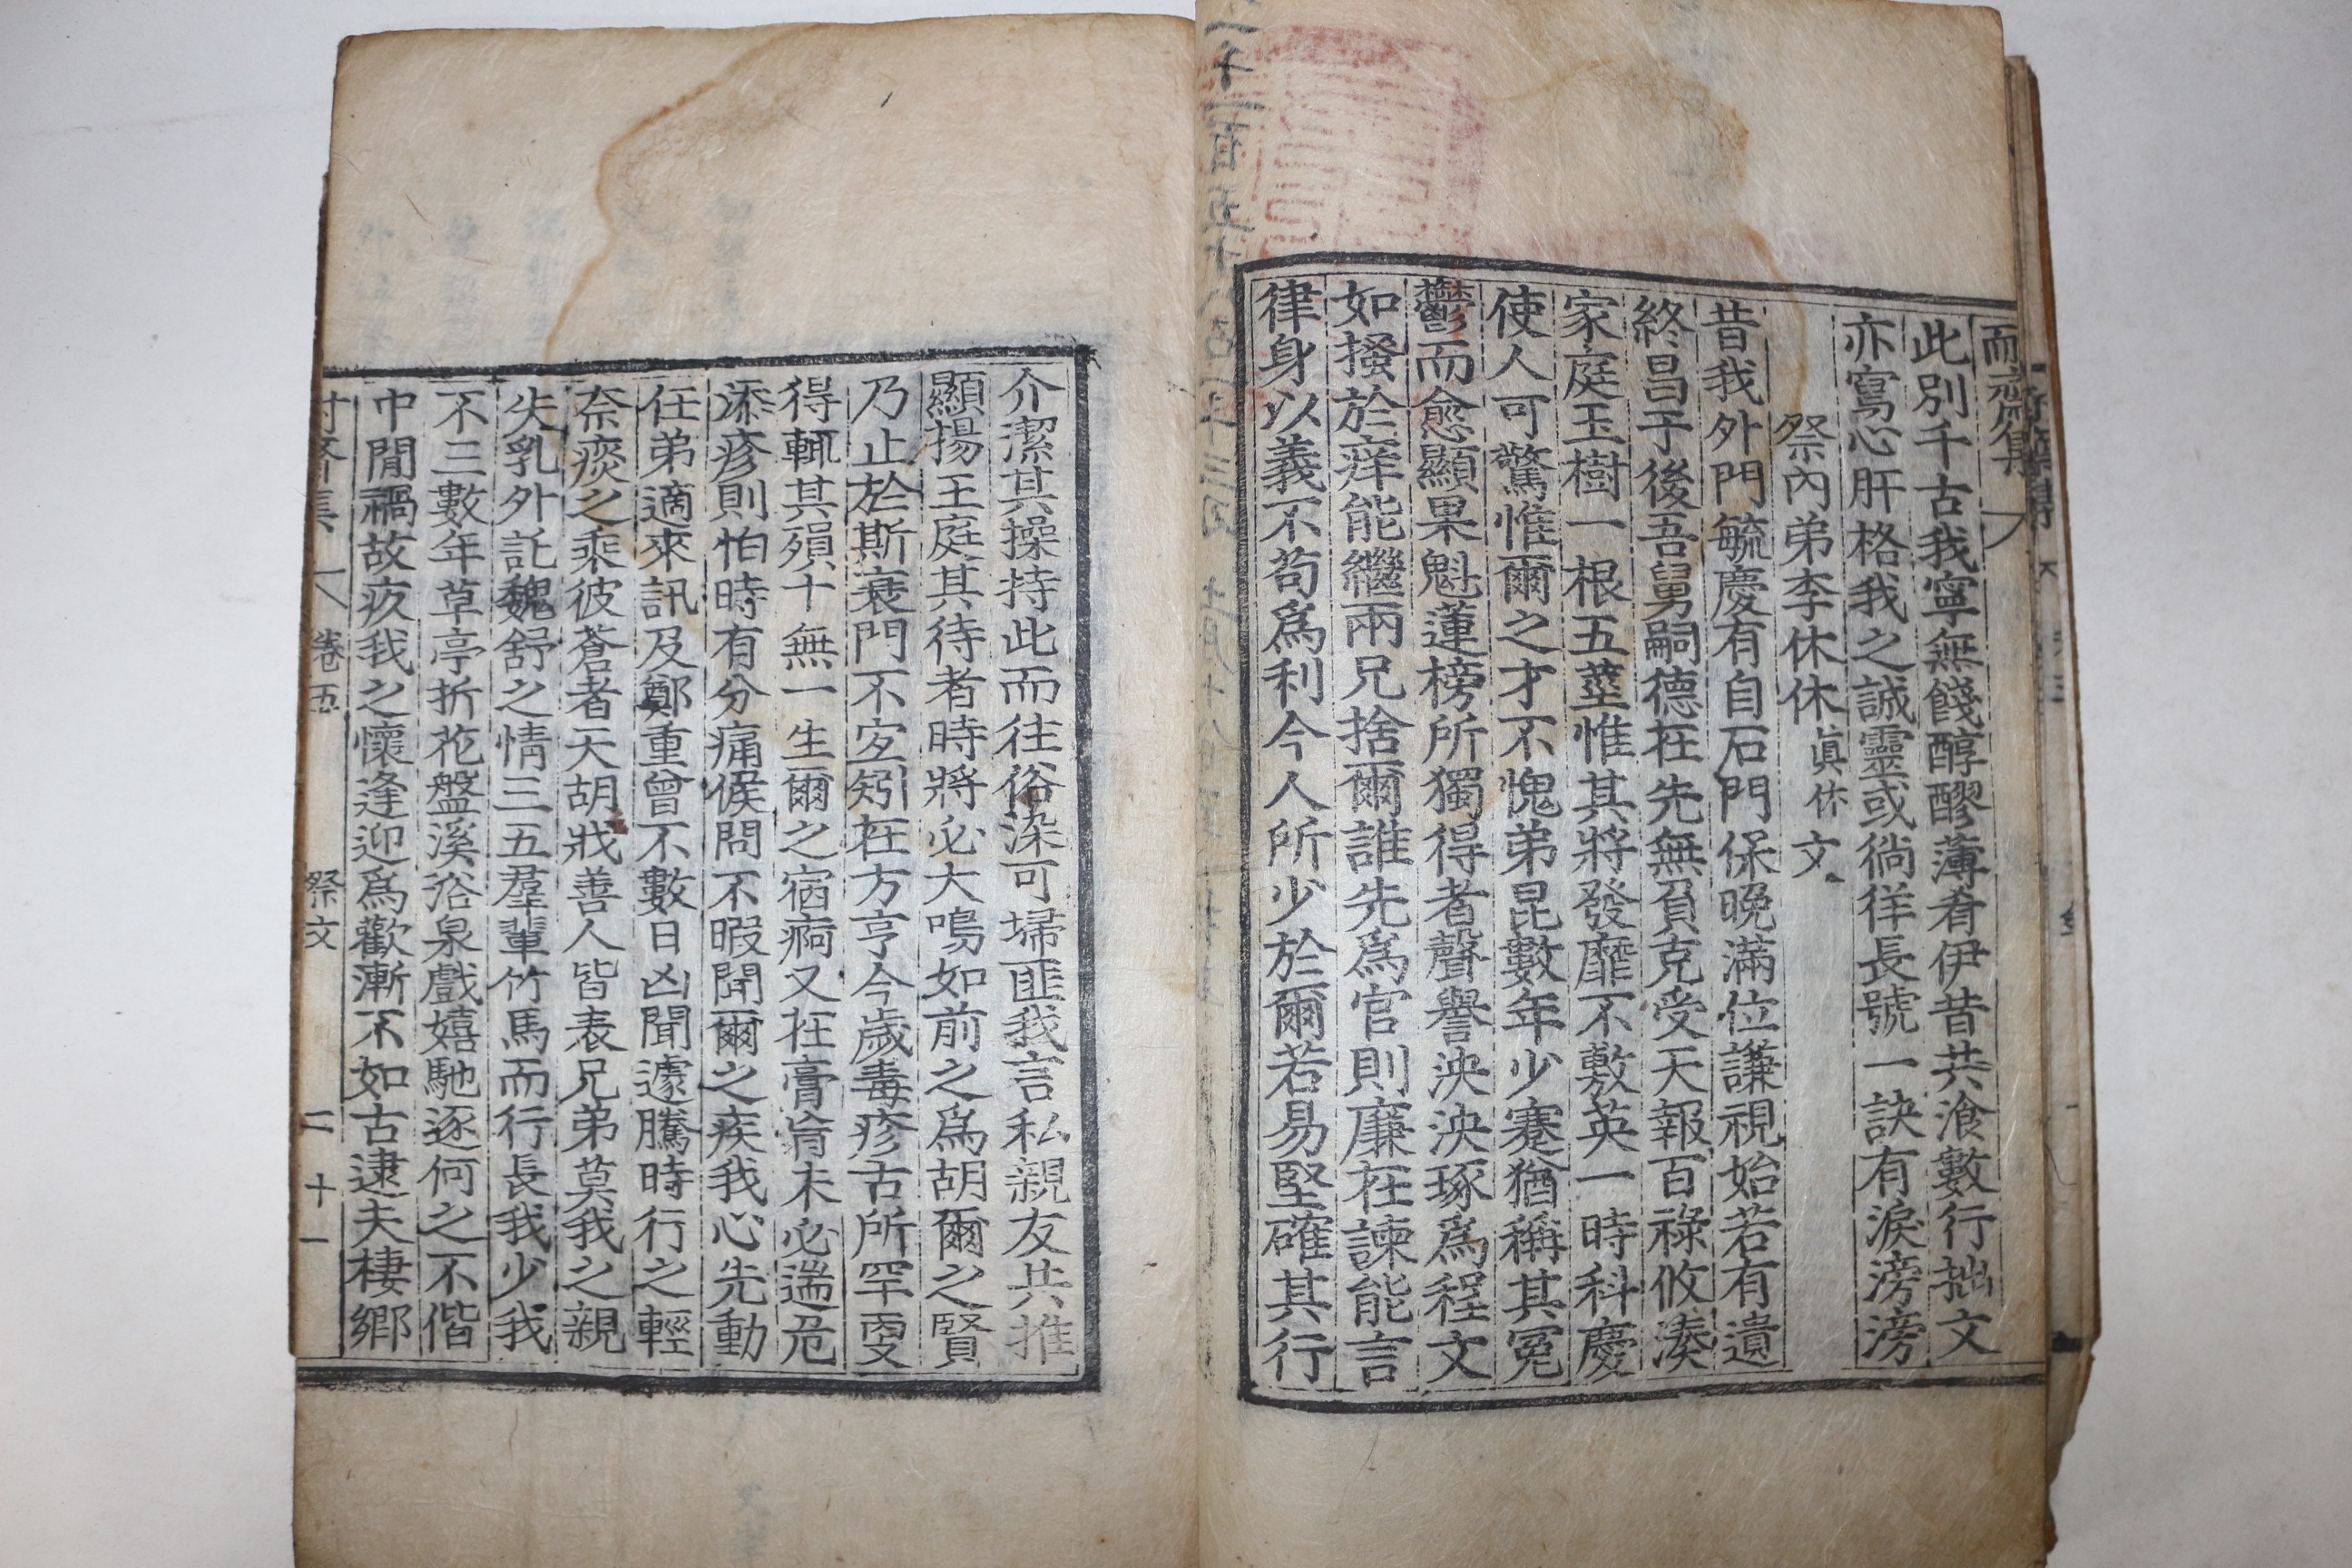 耐齋集
此別千古我寧無餞醇醪薄肴伊昔共飡數行拙文
亦寫心肝格我之誠靈或徜徉長號一訣有淚滂滂
祭內弟李休休眞休文
昔我外門毓慶有自石門保晩滿位謙視始若有遺
終昌于後吾舅嗣德在先無負克受天報百祿攸湊
家庭玉樹一根五莖惟其將發靡不敷英一時科慶
使人可驚惟爾之才不愧弟昆數年少蹇猶稱其冤
鬱而愈顯果魁蓮榜所獨得者聲譽泱泱琢爲程文
如搔於痒能繼兩兄捨爾誰先爲官則廉在諫能言
律身以義不苟爲利今人所少於爾若易堅確其行
介潔其操持此而往俗染可埽匪我言私親友共推
顯揚王庭其待者時將必大鳴如前之爲胡爾之賢
乃止於斯衰門不㝎矧在方亨今歲毒疹古所罕更
得輒其殞十無一生爾之宿痾又在膏肓未必遄危
添疹則怕時有分痛候問不暇聞爾之疾我心先動
任弟適來訊及鄭重曾不數日凶聞遽騰時行之輕
奈痰之乘彼蒼者天胡戕善人皆表兄弟莫我之親
失乳外託魏舒之情三五羣輩竹馬而行長我少我
不三數年草亭折花盤溪浴泉戲嬉馳逐何之不偕
中間禍故疚我之懷逢迎爲歡漸不如古逮夫棲鄉
卷五 祭文 二十一